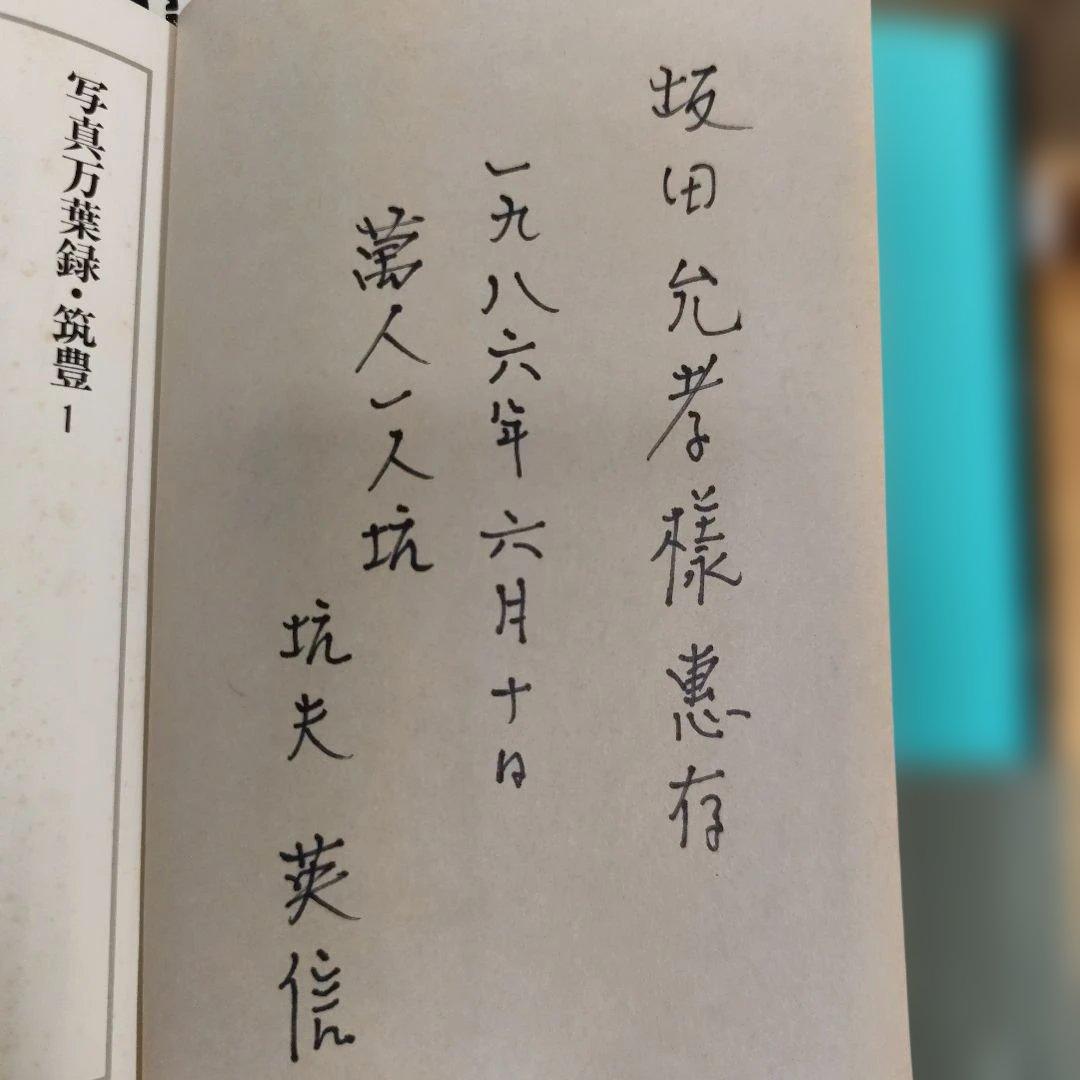 坂田允孝様恵存
一九八六年六月十日
萬人一人坑
坑夫 英信
写真万葉録・筑豊 1